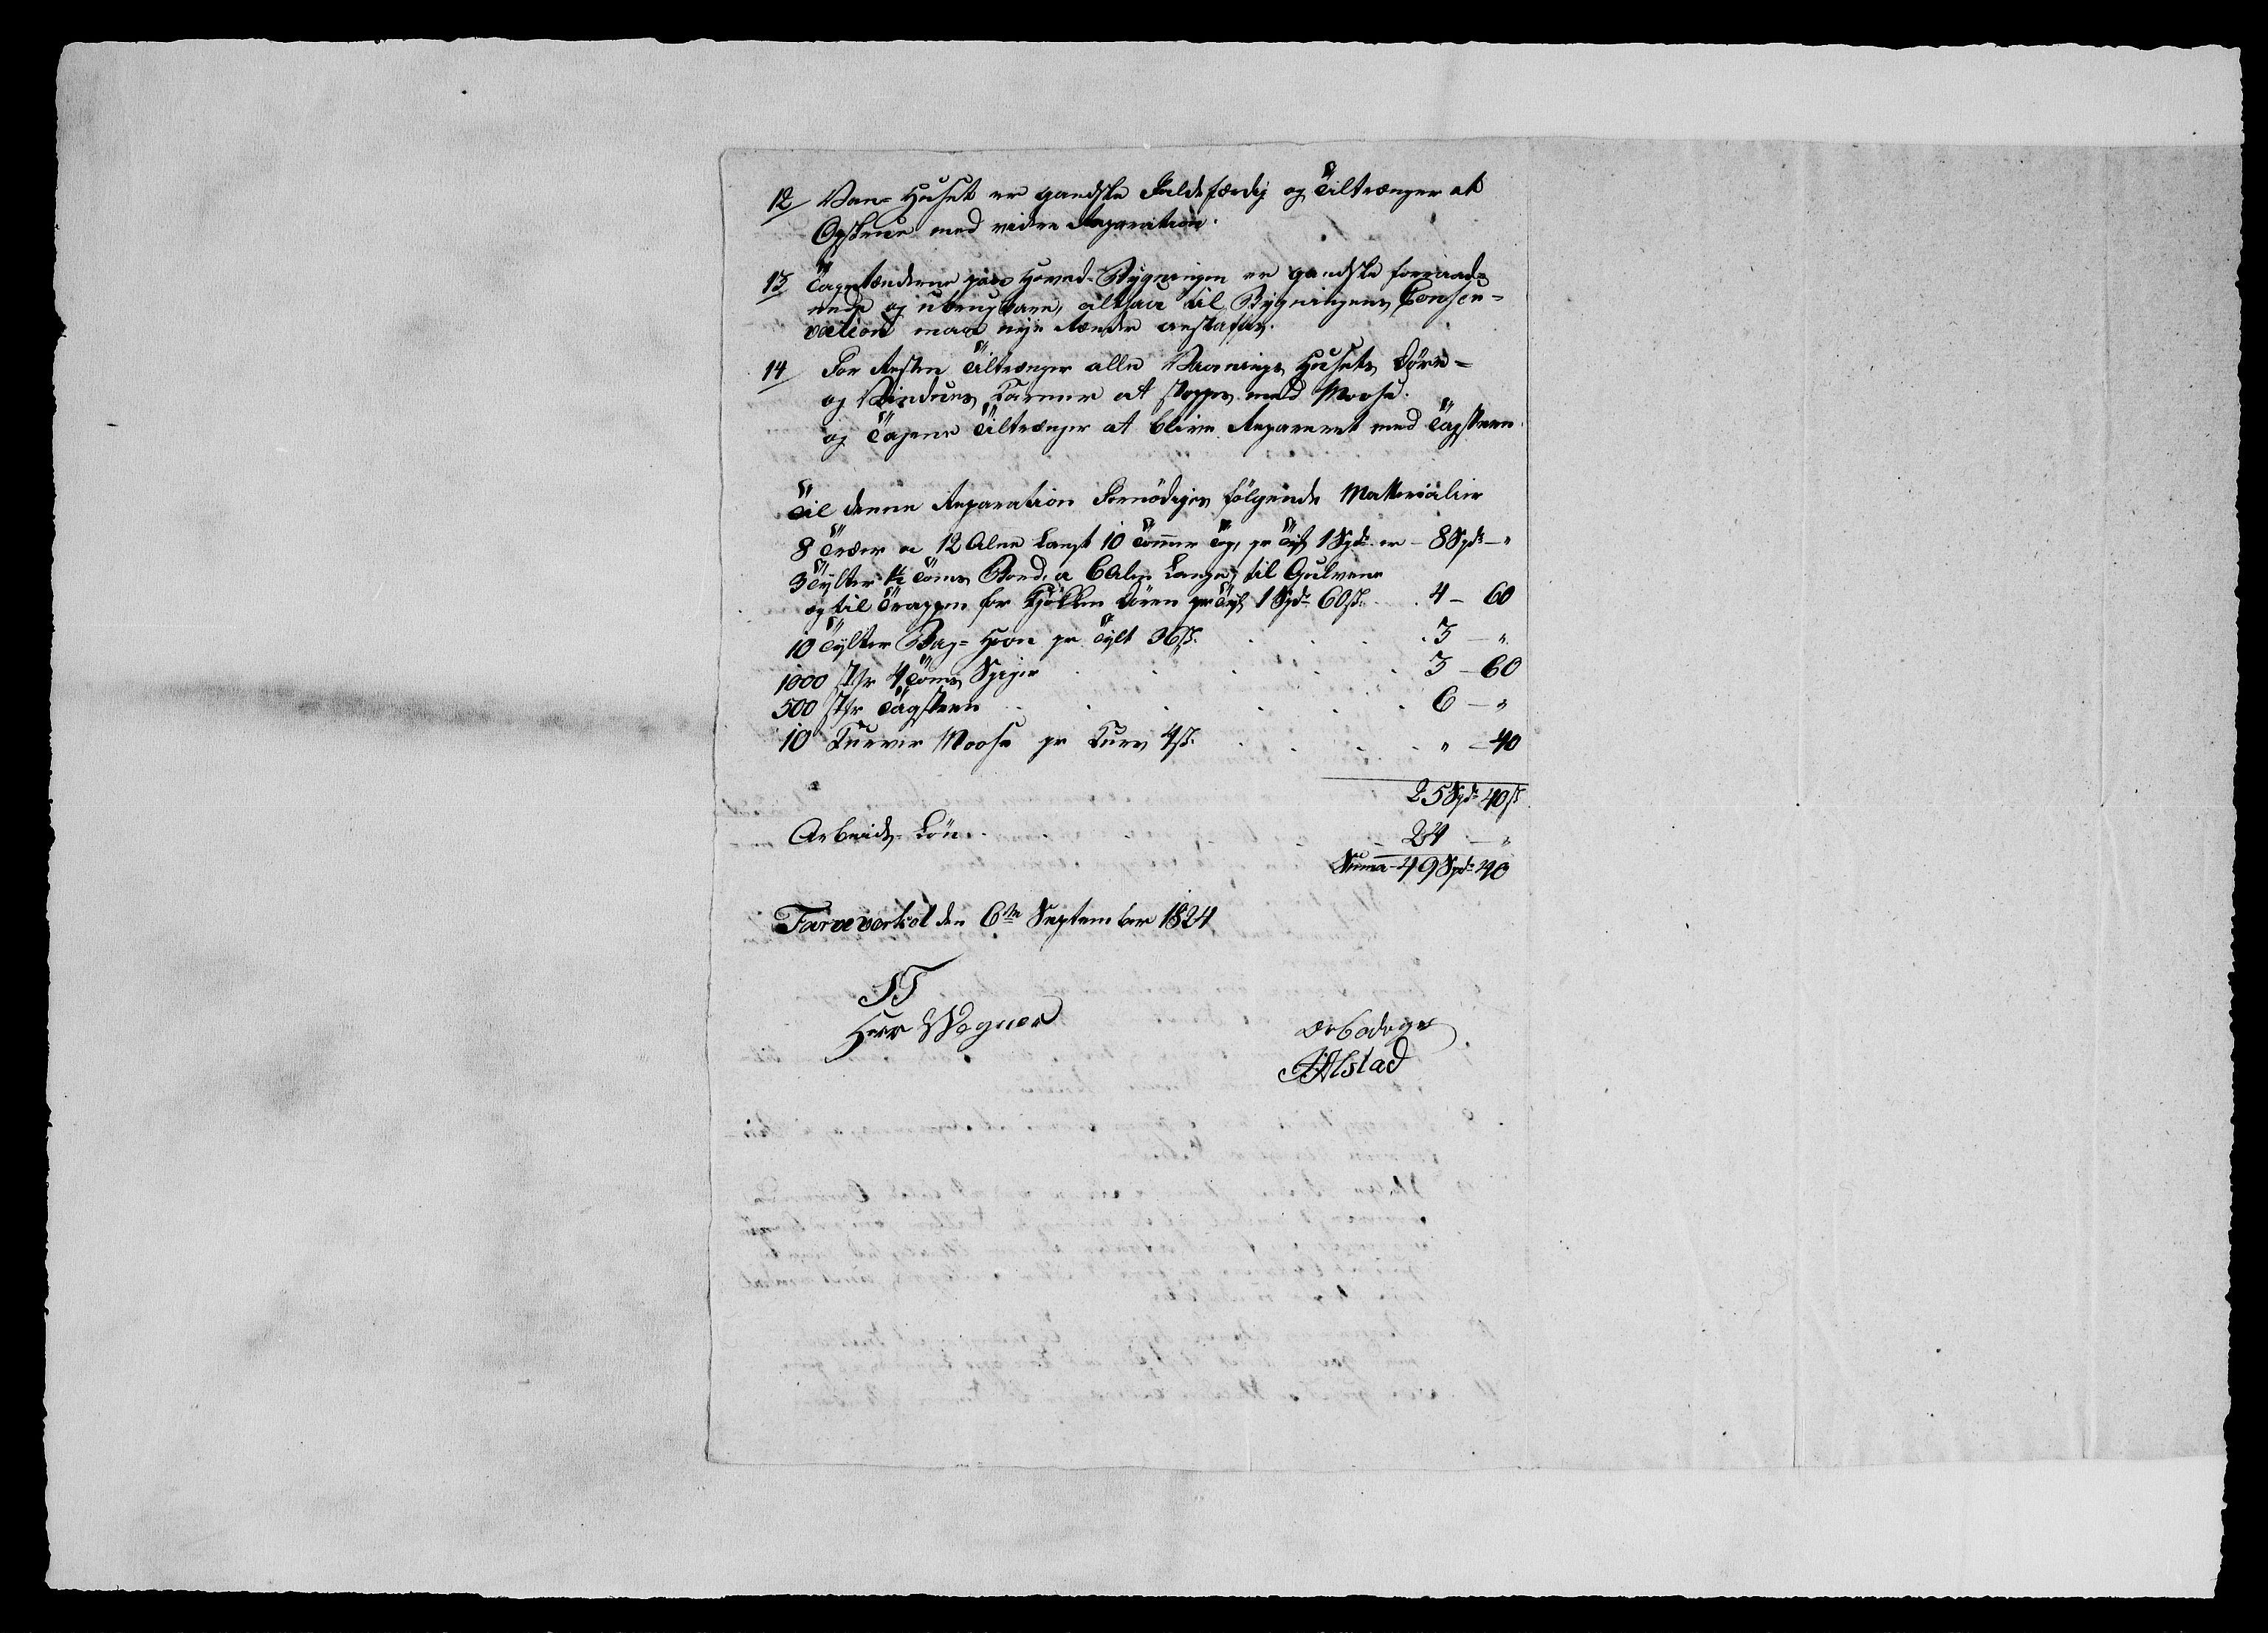 12/ Van= Huset er gandske Faldefærdig og Tiltrænger at
Opskrues med videre Reparation.
13/ Tagrænderne paa Hoved-Bygningen er gandske forraad=
nede og ubrugbare, altsaa til Bygningens Conser=
vation maa nye Rænder anskaffes.
14/ For Resten Tiltrænger alle Vaanings Husets Döre=
og Vindues Karmer at stoppes med Moose.
og Tagene Tiltrænger at blive Repareret med Tagsteen.
Til denne Reparation Fornödiges følgende Matterialier
8 Træer a 12 Alne Langt 10 Tommer Top, pr Stk 1 Spd er – 8 Spd – "
3 Tylter 1½ Toms Bord, a 6 Alne Lange, til Gulvene
og til Trappen for Kjökken Dören pr Tylt 1 Spd 60 s. 4 – 60
10 Tylter Bag= Hon pr Tylt 36 s. 3 – "
1000 Stkr 4 Toms Spiger 3 – 60
500 Stkr Tagsteen 6 – "
10 Kurver Moose pr Kurv 4 s. " – 40
25 Spd 40 s
Arbeids= Lön. 24 – "
Summa 49 Spd 40
Farveværket den 6te September 1824
ST
Herr Wegner
Ærbødigst
Alstad